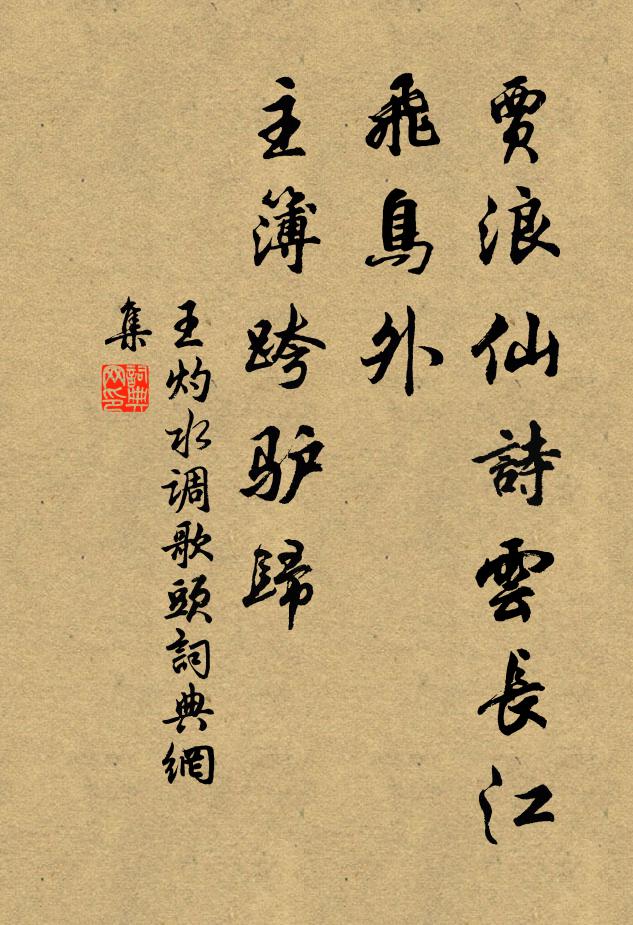 賈浪仙詩雲長江
飛鳥外
主簿跨驴歸
王灼水调歌頭詞典網
集
詞典
网印